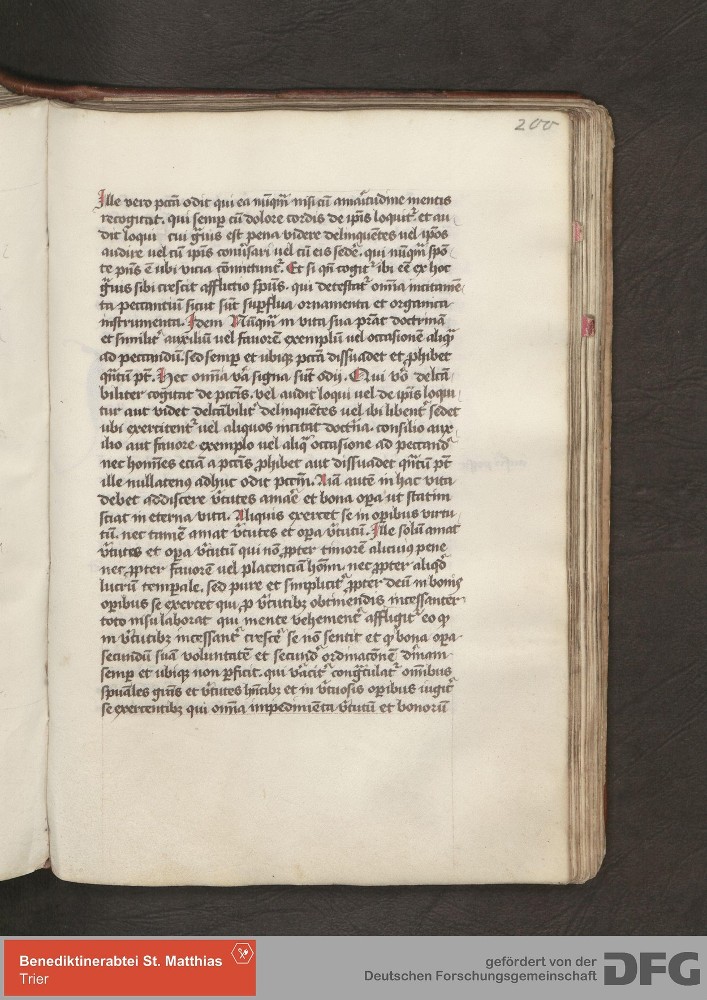 200
Ille vero pctā odit qui ea nūqͫ nisi cū amaritudine mentis
recogitat. qui semp cū dolore cordis de ip̄is loquit᷑ et au
dit loqui cui gͣuius est pena videre delinquētes uel ip̄os
audire uel cū ip̄is cōuersari uel cū eis sedē. qui nūqͫ spō
te p̄ns ē ubi vicia cōmittunt᷑. Et si qn̄ cogit᷑ ibi eē ex hoc
gͣuius sibi crescit afflictio sp̄us. qui detestat᷑ om̄ia incitamē
ta peccantiū sicut sūt sup̄flua ornamenta et organica
instrumenta. Idem Nūqͫ in vita sua p̄stat doctrinā
et similit᷑ auxiliū uel fauorē exemplū uel occasionē aliqͫ
ad peccandū. sed semp et ubiqꝫ pctā dissuadet et ꝓhibet
qͣntū pt̄. Hec om̄ia v̄a signa sūt odij. Qui v̊o delcā
biliter cogitat de pctīs. vel audit loqui vel de ip̄is loqui
tur aut videt delcābilit᷑ delinquētes uel ibi libent᷑ sedet
ubi exercitent᷑ vel aliquos incitat doctͥna. consilio aux
ilio aut fauore exemplo uel aliqͣ occasione ad peccand᷑
nec homīes eciā a pctīs ꝓhibet aut dissuadet qͣntū pt̄
ille nullatenus adhuc odit pctm̄. Iā autē in hac vita
debet addiscere v̄tutes amar̄e et bona opera ut statim
sciat in eterna vita. Aliquis exercet se in op̄ibus virtu
tū. nec tamē amat v̄tutes et op̄a v̄tutū. Ille solū amat
v̄tutes et op̄a v̄tutū qui nō ꝓpter timorē alicuius pene
nec ꝓpter fauorē vel placenciā hoīm. nec ꝓpter aliqd̄
lucrū temp̄ale. sed pure et simplicit᷑ ꝓpter deū in bonis
op̄ibus se exercet qui ꝓ v̄tutibꝫ obtinendis incessanter
toto nisu laborat qui mente vehement᷑ affligit᷑ eo qꝫ
in v̄tutibꝫ incessant᷑ crescē se nō sentit et qꝫ bona op̄a
secundū suā voluntatē et secund᷑ ordinacōnem diuinam
semp et ubiqꝫ non ꝑficit. qui v̄acit᷑ congͣtulat᷑ om̄ibus
sp̄uales gͣtias et v̄tutes hn̄tibꝫ et in v̄tuosis op̄ibus iugit᷑
se exercentibꝫ qui om̄ia impedimēta v̄tutū et bonorū
Benediktinerabtei St. Matthias
Trier
gefördert von der
Deutschen Forschungsgemeinschaft
DFG